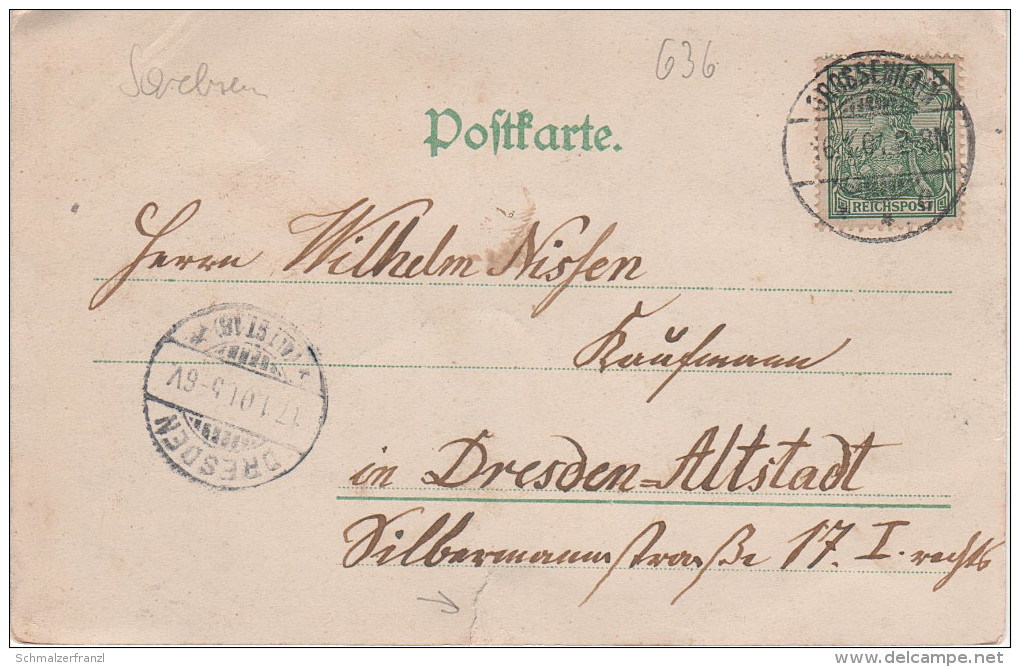 Sachsen
636
Postkarte.
GROSSENHAIN
REICHSPOST
Herrn Wilhelm Nissen
Kaufmann
in Dresden-Altstadt
Silbermannstraße 17. I. rechts
DRESDEN
17.1.01.5-6V
(ALTST.16)
Schmalzerfranzl
delcampe.net